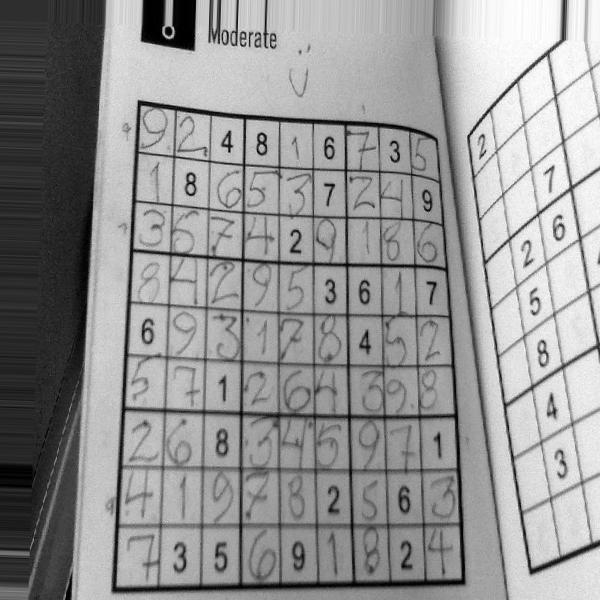 Moderate
9 2 4 8 1 6 7 3 5
1 8 6 5 3 7 2 4 9
3 5 7 4 2 9 1 8 6
8 4 2 9 5 3 6 1 7
6 9 3 1 7 8 4 5 2
5 7 1 2 6 4 3 9 8
2 6 8 3 4 5 9 7 1
4 1 9 7 8 2 5 6 3
7 3 5 6 9 1 8 2 4
2
7
2 6
5
8
4
3